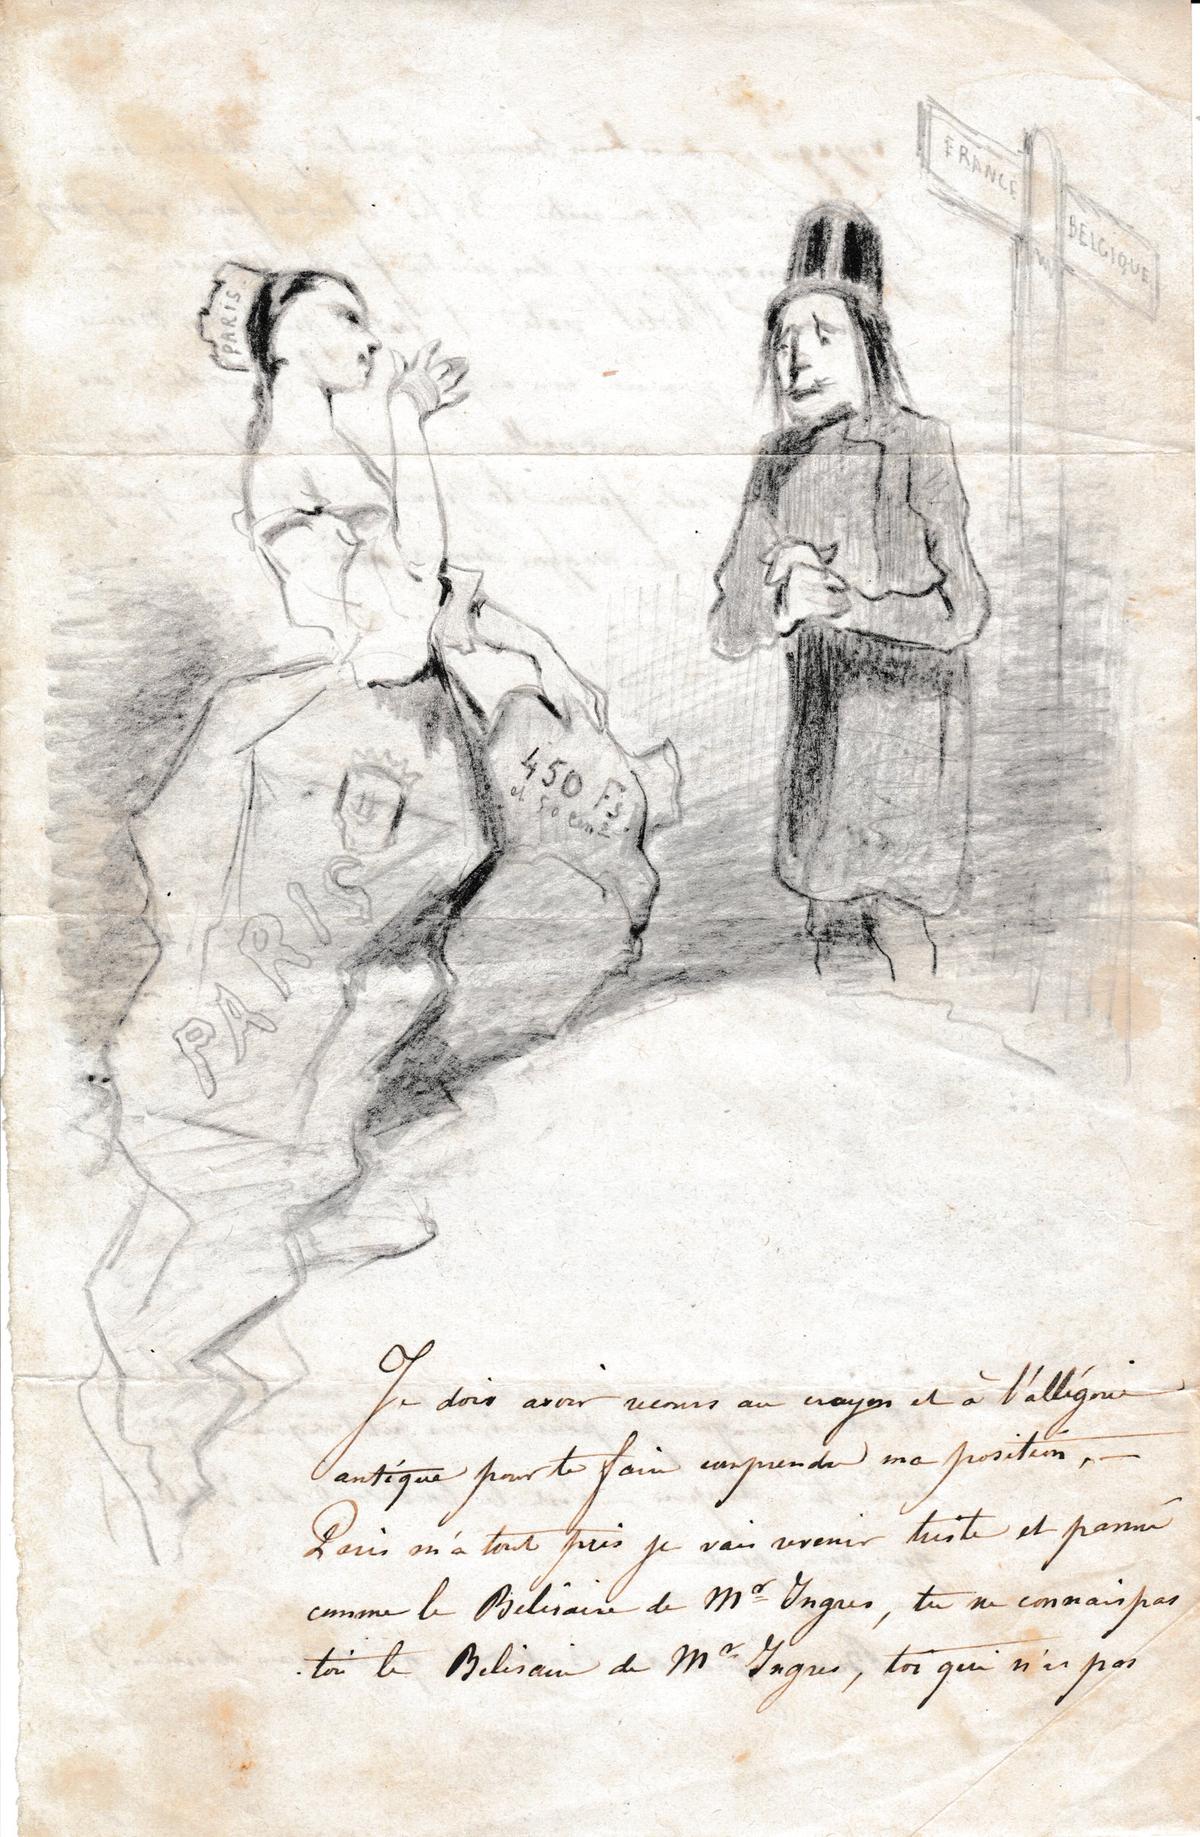 FRANCE
BELGIQUE
PARIS
450 Fs.
et 50 cent
PARIS
Je dois avoir recours au crayon et à l'allégorie
antique pour te faire comprendre ma position, —
Paris m'a tout pris je vais revenir triste et panné
comme le Belisaire de Mr Ingres, tu ne connais pas
toi le Belisaire de Mr Ingres, toi qui n'es pas